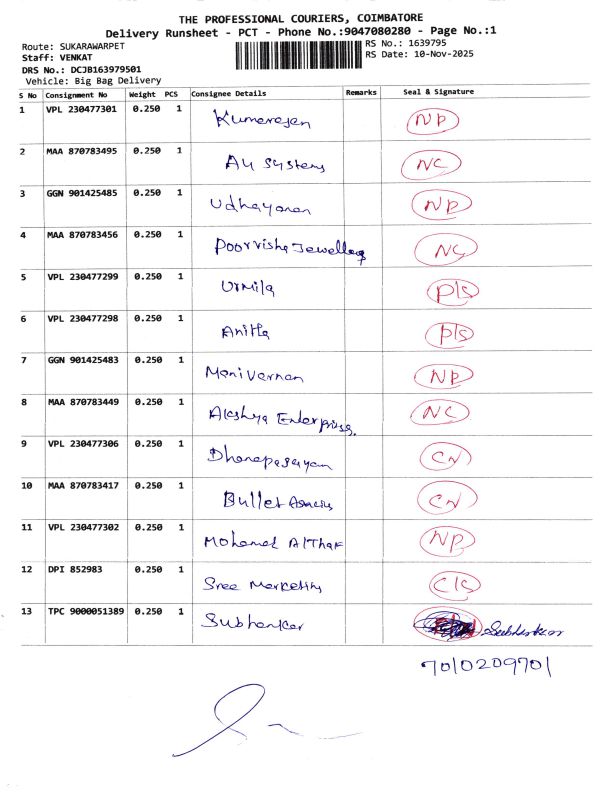 THE PROFESSIONAL COURIERS, COIMBATORE
Delivery Runsheet - PCT - Phone No.:9047080280 - Page No.:1
Route: SUKARAWARPET
RS No.: 1639795
Staff: VENKAT
RS Date: 10-Nov-2025
DRS No.: DCJB163979501
Vehicle: Big Bag Delivery
S No Consignment No Weight PCS Consignee Details Remarks Seal & Signature
1 VPL 230477301 0.250 1 Kumaresan NP
2 MAA 870783495 0.250 1 AU Systems NC
3 GGN 901425485 0.250 1 Udhayanan NP
4 MAA 870783456 0.250 1 Poorvisha Jewellers NC
5 VPL 230477299 0.250 1 Urmila P/S
6 VPL 230477298 0.250 1 Anitha P/S
7 GGN 901425483 0.250 1 Manivannan NP
8 MAA 870783449 0.250 1 Akshya Enterprises NC
9 VPL 230477306 0.250 1 Dhanapasayam CN
10 MAA 870783417 0.250 1 Bullet Agencies CN
11 VPL 230477302 0.250 1 Mohamed Althaf NP
12 DPI 852983 0.250 1 Sree Marketing C/S
13 TPC 9000051389 0.250 1 Subhankar Subhankar
7010209701